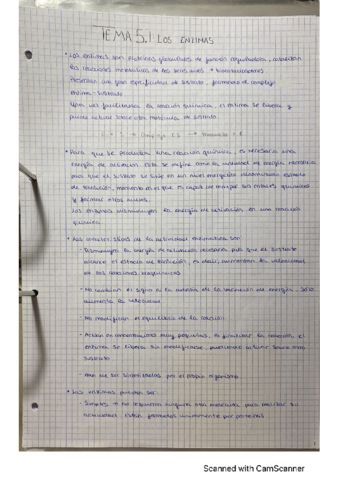 TEMA 5.1 LOS ENZIMAS
• Los enzimas son proteínas globulares de función reguladora, catalizan
las reacciones metabólicas de los seres vivos → biocatalizadores
Presentan una gran especificidad de sustrato, formando el complejo
enzima - sustrato
Una vez facilitada la reacción química, el enzima se libera y
puede actuar sobre otra molécula de sustrato
E + S → Complejo ES → Producto + E
• Para que se produzca una reacción química, es necesaria una
energía de activación. Esta se define como la cantidad de energía necesaria
para que el sustrato se sitúe en un nivel energético denominado estado
de transición, momento en el que es capaz de romper sus enlaces químicos
y formar otros nuevos.
Los enzimas disminuyen la energía de activación en una reacción
química
• Las características de la actividad enzimática son:
- Disminuyen la energía de activación necesaria para que el sustrato
alcance el estado de transición, es decir, aumentan la velocidad
de las reacciones bioquímicas
- No cambian el signo ni la cuantía de la variación de energía, solo
aumenta la velocidad
- No modifican el equilibrio de la reacción
- Actúan en concentraciones muy pequeñas, al finalizar la reacción, el
enzima se libera sin modificarse pudiendo actuar sobre otro
sustrato
- Han de ser sintetizados por el propio organismo
• Las enzimas pueden ser:
- Simples → no requieren ninguna otra molécula para realizar su
actividad. Están formadas únicamente por proteínas
1
Scanned with CamScanner